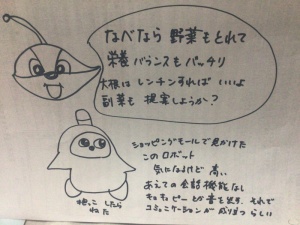 なべなら 野菜もとれて
栄養バランスもバッチリ
大根はレンチンすればいいよ
副菜も 提案しようか?
ショッピングモールで見かけた
このロボット
気になるけど 高い
あえての会話機能なし
キュキュピーとか音を出す、それで
コミュニケーションが成り立つらしい
抱っこしたら
ねた